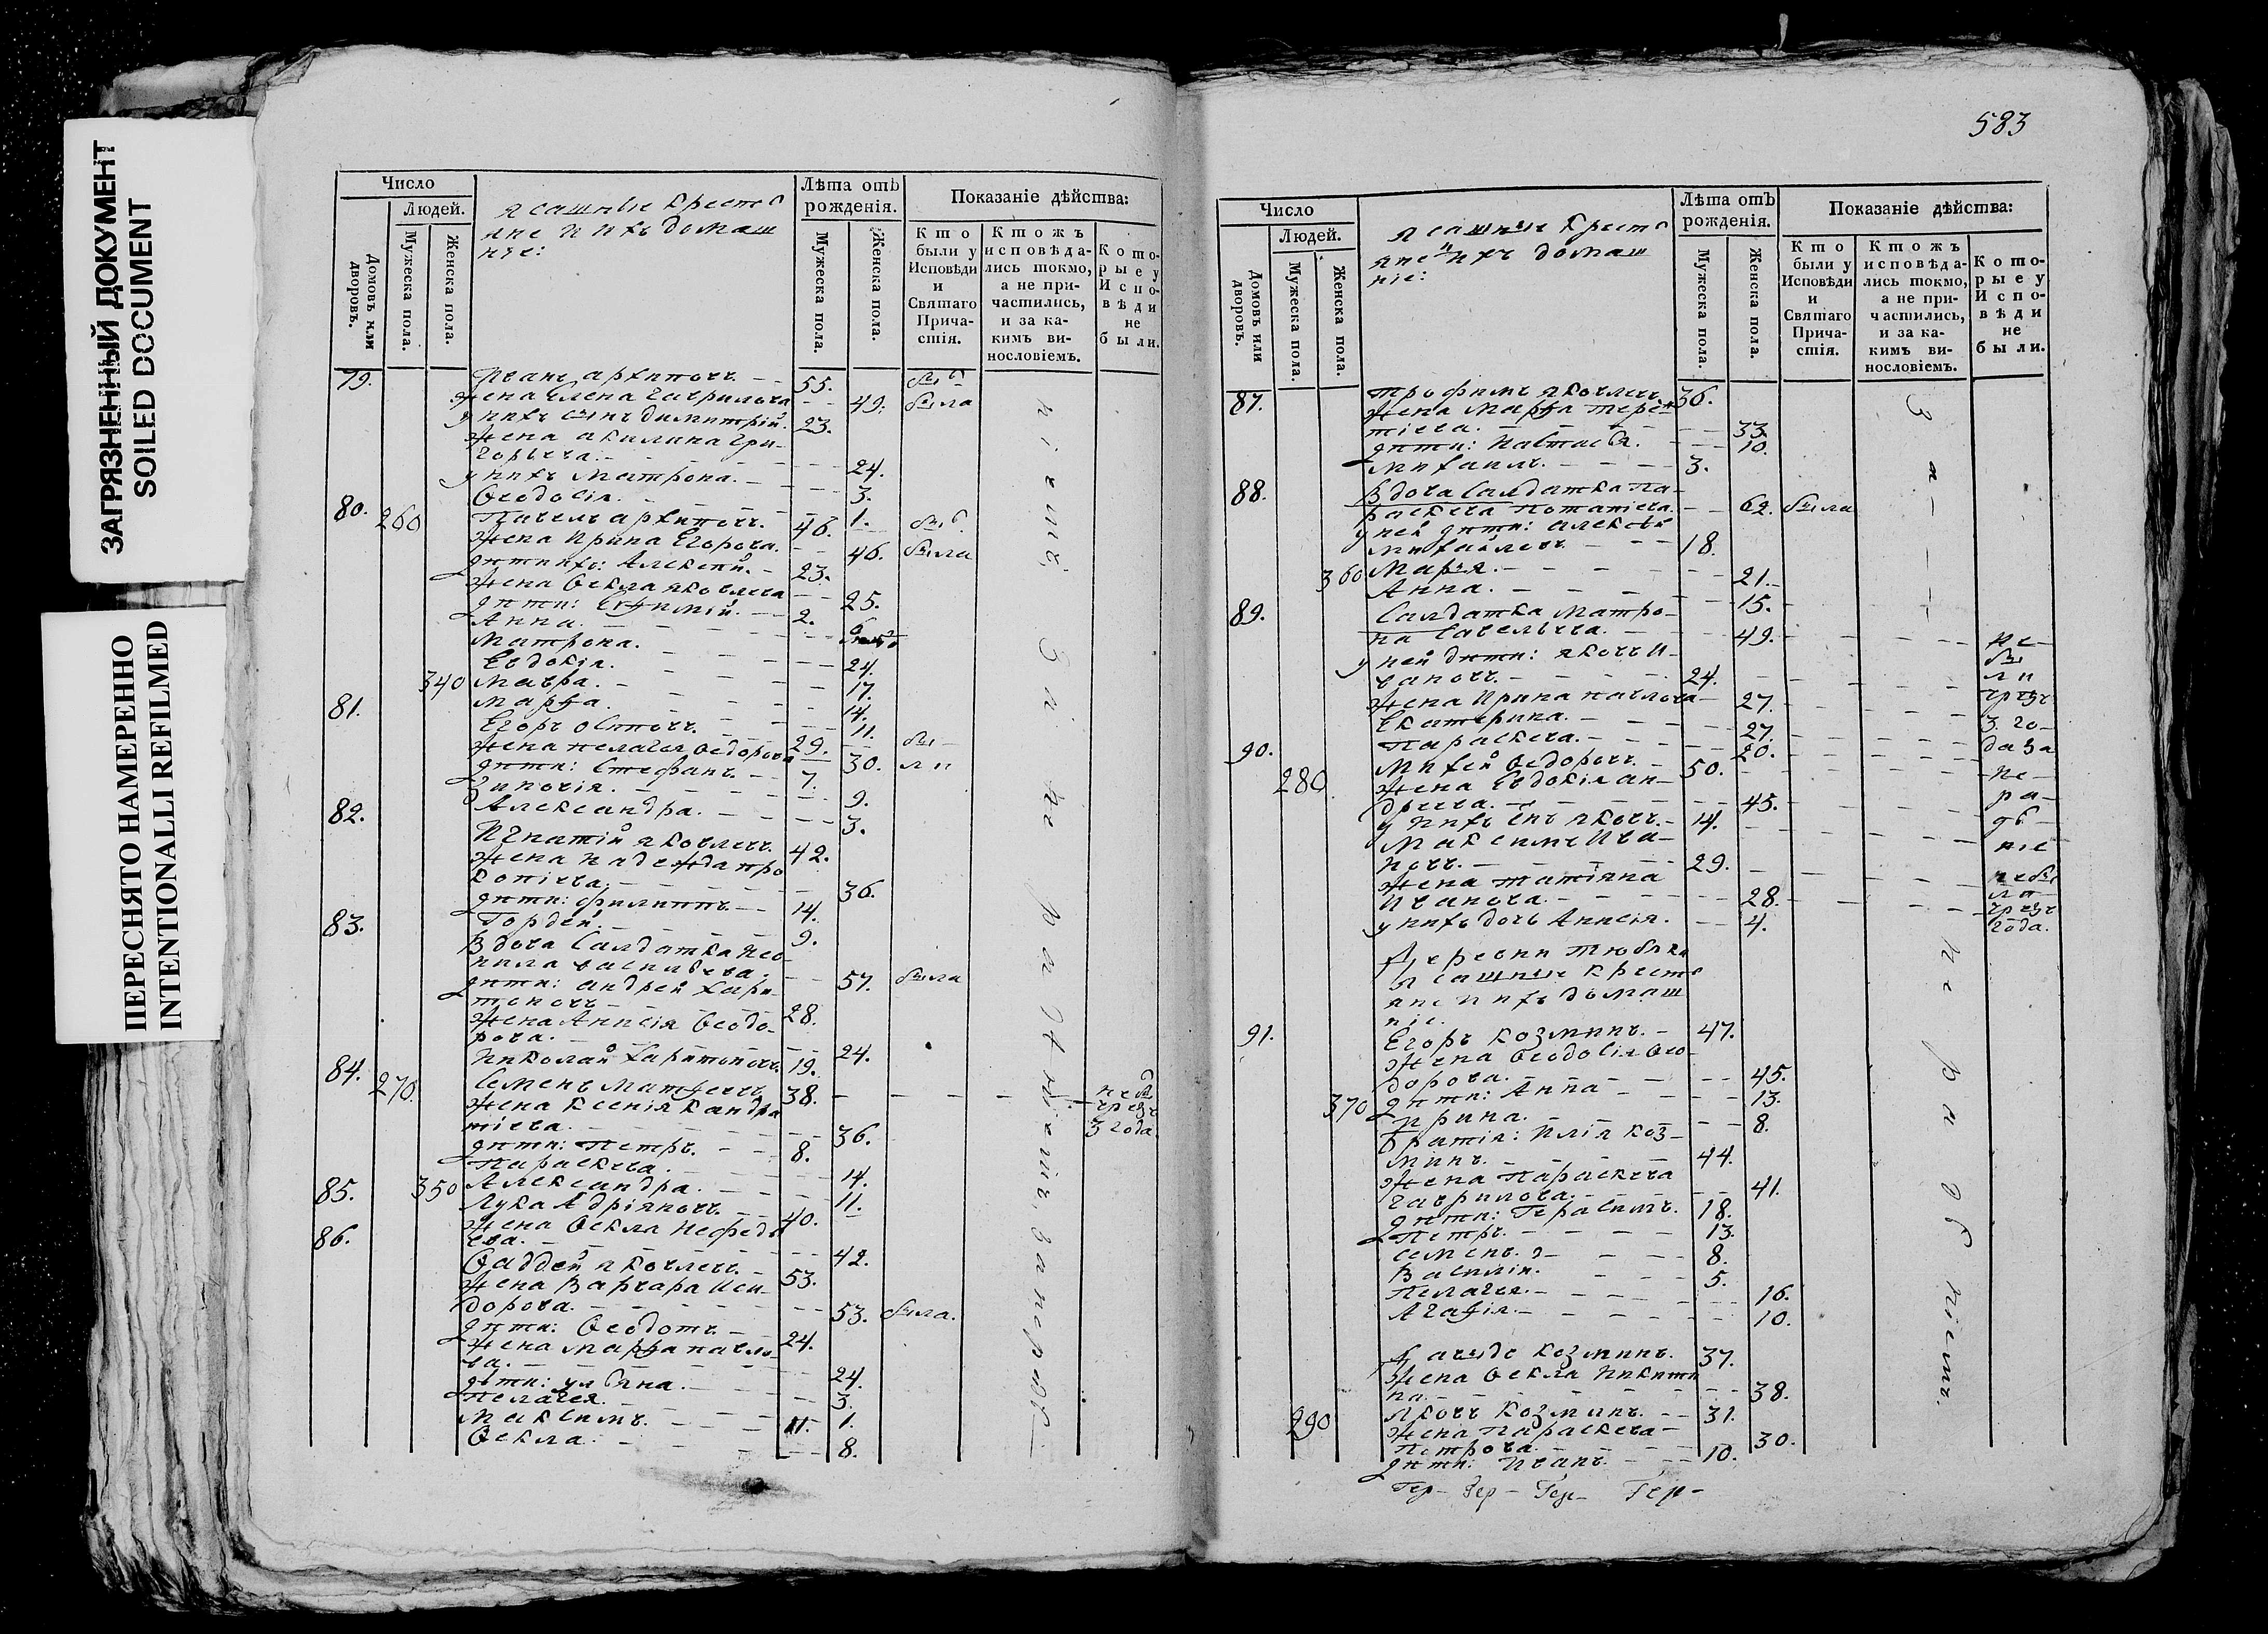 ЗАГРЯЗНЕННЫЙ ДОКУМЕНТ
SOILED DOCUMENT
ПЕРЕСНЯТО НАМЕРЕННО
INTENTIONALLI REFILMED
Число
Людей.
Домовъ или дворовъ.
Мужеска пола.
Женска пола.
ясашные кресть
яне и ихъ домаш
ніе:
Лѣта отъ рожденія.
Мужеска пола.
Женска пола.
Показаніе дѣйства:
Кто были у Исповѣди и Святаго Причастія.
Ктожъ исповѣдались токмо, а не причастились, и за какимъ винословіемъ.
Которые у Исповѣди не были.
79. Иванъ архиповъ. 55. бы
жена Елена Гаврилова 49. была
у нихъ сынъ димитрій. 23.
жена акилина Гри-
горьева. 24.
у нихъ Матрона. 3.
Ѳеодосія. 1.
80. 260 Павелъ архиповъ. 46. бы
жена Ирина Егорова. 46. была
дети ихъ: Алексей. 23.
жена Ѳекла яковлева 25.
дети: Евфимій. 2.
Анна. 6
Матрона.
Евдокія. 24.
340 Мавра. 17.
Марфа. 14.
81. Егоръ 11.
29. бы
жена пелагея Ѳедорова 30. ли
дети: Стефанъ. 7.
Зиновія. 9.
82. Александра. 3.
Игнатій яковлевъ. 42.
жена надежда про
копіева. 36.
дети: филиппъ. 14.
83. Гордей. 9.
вдова Салдатка Нео
нила васильева. 57. была
дети: андрей хари-
тоновъ 28.
жена Аннсія Ѳеодо-
рова. 24.
Николай харитоновъ. 19.
84. 270 Семенъ Матфеевъ. 38. не бы
жена Ксенія Кандра чрезъ
тіева. 36. 3 года.
дети: Петръ. 8.
Параскева. 14.
85. 350 Александра. 11.
Лука Адріяновъ. 40.
86. жена Ѳекла Нефедь
ева. 42.
Ѳаддей яковлевъ. 53.
жена Варвара Иси-
дорова. 53. была.
дети: Ѳеодотъ. 24.
жена Марфа павло-
ва. 24.
дети: ульяна. 3.
Пелагея. 1.
Максимъ. 11.
Ѳекла. 8.
583
Число
Людей.
Домовъ или дворовъ.
Мужеска пола.
Женска пола.
ясашные кресть
яне и ихъ домаш
ніе:
Лѣта отъ рожденія.
Мужеска пола.
Женска пола.
Показаніе дѣйства:
Кто были у Исповѣди и Святаго Причастія.
Ктожъ исповѣдались токмо, а не причастились, и за какимъ винословіемъ.
Которые у Исповѣди не были.
87. трофимъ яковлевъ 36.
жена Марфа терен
тіева. 33.
дети: Настасья. 10.
Михаилъ. 3.
88. вдова Салдатка па-
раскева потапіева. 62. была
у ней дети: алексей
Михайловъ. 18.
360 Марья. 21.
Анна. 15.
89. Салдатка Матро-
на Савельева. 49. не
у ней дети: яковъ И- бы
вановъ. 24. ли
жена Ирина павлова 27. чрезъ
Екатерина. 27. 3 го-
Параскева. 20. да за
90. Михей Ѳедоровъ. 50. не
280 жена Евдокія ан- ра-
дреева. 45. дѣ-
у нихъ сынъ яковъ. 14. ніе
Максимъ Ива-
новъ. 29. не бы
жена татіяна ли
Иванова. 28. чрезъ
у нихъ дочь Аннсія. 4. года.
Деревни
Ясашные кресть
яне и ихъ домаш
ніе.
91. Егоръ козминъ. 47.
жена Ѳеодосія Ѳео-
дорова. 45.
370 дети: Анна 13.
Ирина. 8.
братія: Илія коз-
минъ. 44.
жена Параскева
Гаврилова. 41.
дети: Герасимъ. 18.
Петръ. 13.
Семенъ. 8.
Василій. 5.
Пелагея. 16.
Агафія. 10.
Давыдъ козминъ. 37.
жена Ѳекла Никити
на. 38.
290 Яковъ козминъ. 31.
жена Параскева
Петрова. 30.
дети: Иванъ. 10.
Гер- Гер- Гер- Гер-